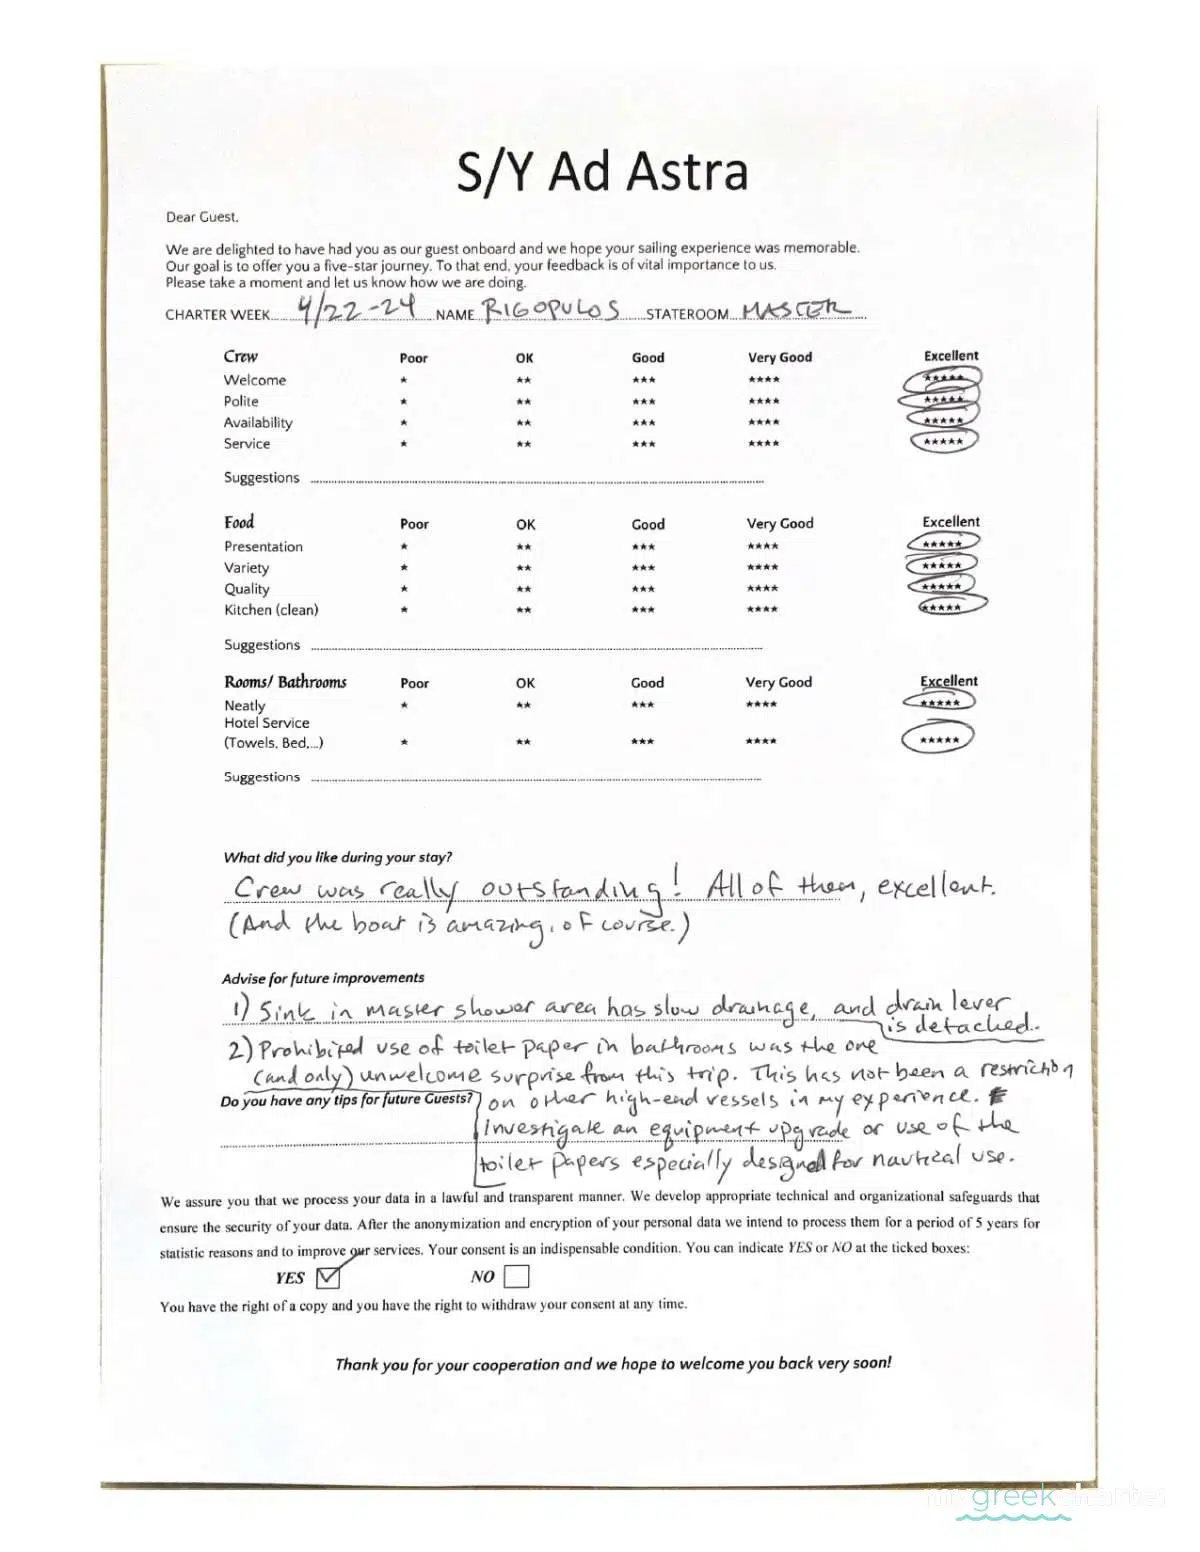 S/Y Ad Astra
Dear Guest,
We are delighted to have had you as our guest onboard and we hope your sailing experience was memorable.
Our goal is to offer you a five-star journey. To that end, your feedback is of vital importance to us.
Please take a moment and let us know how we are doing.
CHARTER WEEK 4/22-24 NAME RIGOPULOS STATEROOM MASTER
Crew Poor OK Good Very Good Excellent
Welcome * ** *** **** *****
Polite * ** *** **** *****
Availability * ** *** **** *****
Service * ** *** **** *****
Suggestions
Food Poor OK Good Very Good Excellent
Presentation * ** *** **** *****
Variety * ** *** **** *****
Quality * ** *** **** *****
Kitchen (clean) * ** *** **** *****
Suggestions
Rooms/ Bathrooms Poor OK Good Very Good Excellent
Neatly * ** *** **** *****
Hotel Service
(Towels, Bed,...) * ** *** **** *****
Suggestions
What did you like during your stay?
Crew was really outstanding! All of them, excellent.
(And the boat is amazing, of course.)
Advise for future improvements
1) Sink in master shower area has slow drainage, and drain lever
is detached.
2) Prohibited use of toilet paper in bathrooms was the one
(and only) unwelcome surprise from this trip. This has not been a restriction
Do you have any tips for future Guests? on other high-end vessels in my experience.
investigate an equipment upgrade or use of the
toilet papers especially designed for nautical use.
We assure you that we process your data in a lawful and transparent manner. We develop appropriate technical and organizational safeguards that
ensure the security of your data. After the anonymization and encryption of your personal data we intend to process them for a period of 5 years for
statistic reasons and to improve our services. Your consent is an indispensable condition. You can indicate YES or NO at the ticked boxes:
YES NO
You have the right of a copy and you have the right to withdraw your consent at any time.
Thank you for your cooperation and we hope to welcome you back very soon!
mygreekcharter